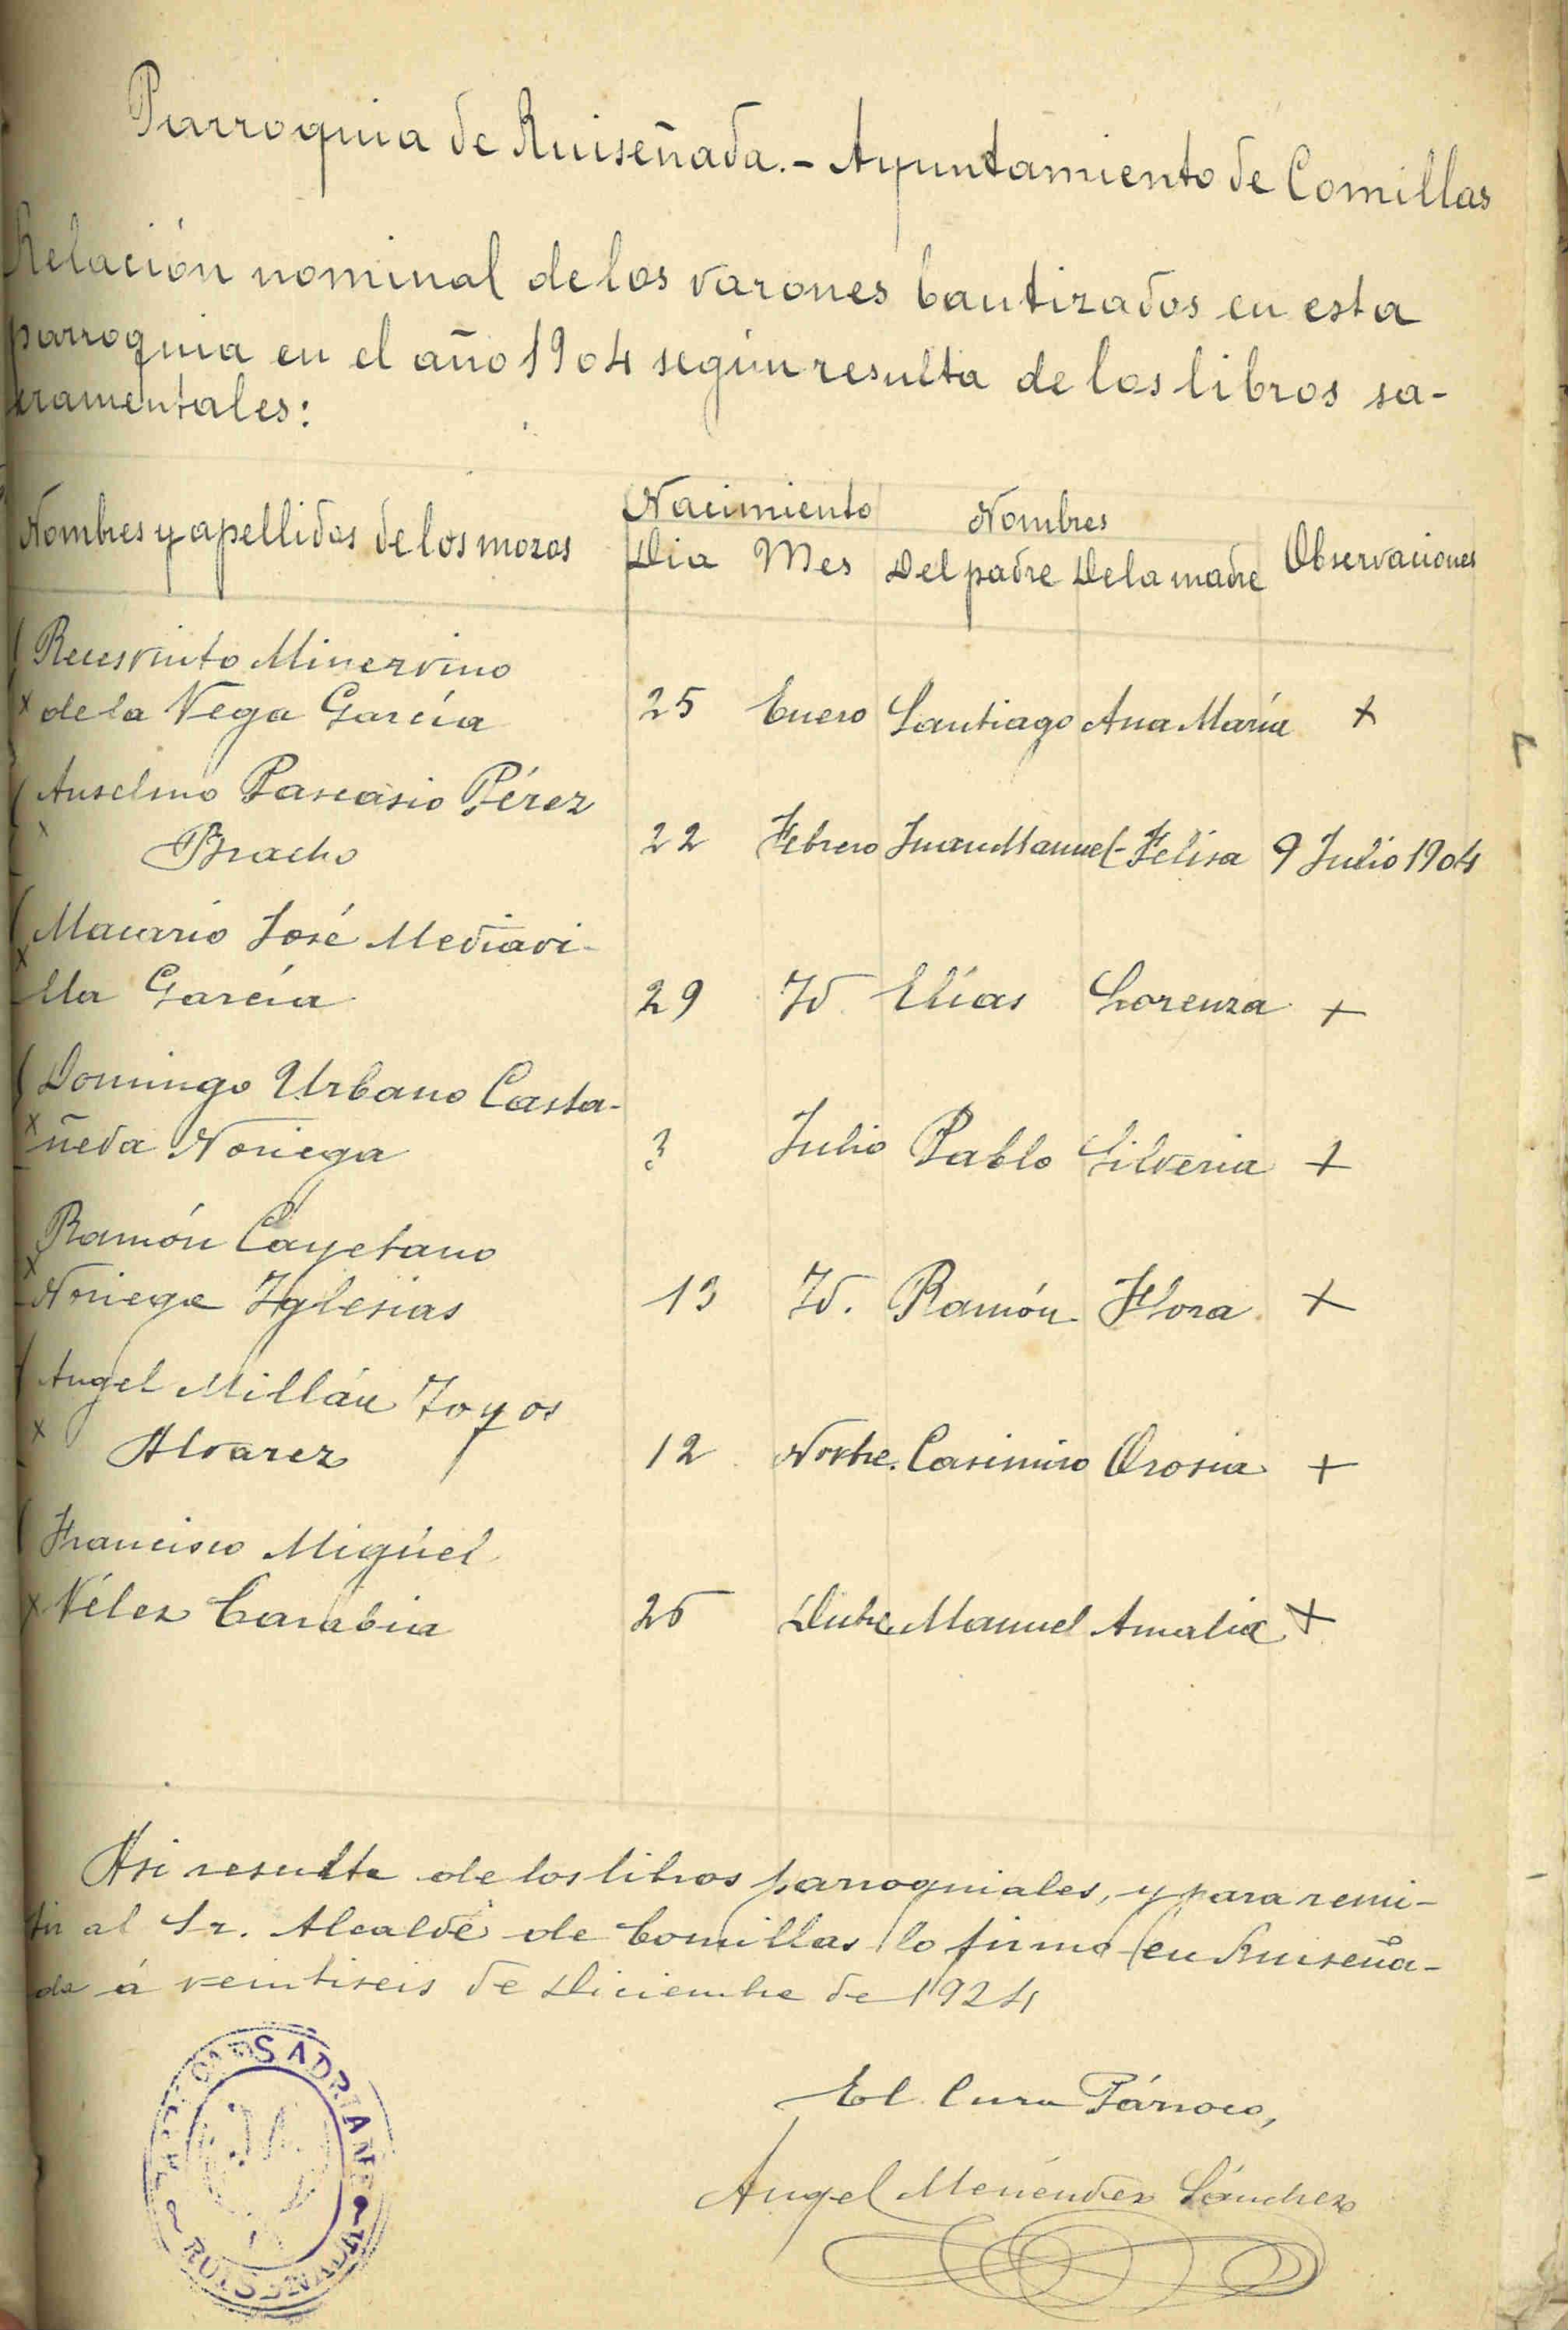 Parroquia de Ruiseñada.- Ayuntamiento de Comillas
Relación nominal de los varones bautizados en esta
parroquia en el año 1904 según resulta de los libros sa-
cramentales:
Nombres y apellidos de los mozos Nacimiento Nombres Observaciones
Dia Mes Del padre De la madre
Recesvinto Minervino
x de la Vega García 25 Enero Santiago Ana María +
Anselmo Pascasio Pérez
x Bracho 22 Febrero Juan Manuel - Felisa 9 Julio 1904
Macario José Mediavi-
x lla García 29 Id. Elías Lorenza +
Domingo Urbano Casta-
x ñeda Noriega 3 Julio Pablo Silveria +
Ramón Cayetano
x Noriega Iglesias 13 Id. Ramón Flora +
Angel Millán Toyos
x Alvarez 12 Novbre. Casimiro Orosia +
Francisco Migüel
x Vélez Carabia Dicbre Manuel Amalia +
Asi resulta de los libros parroquiales, y para remi-
tir al Sr. Alcalde de Comillas lo firmo en Ruiseña-
da á veintiseis de Diciembre de 1924
El Cura Párroco,
Angel Menéndez Sánchez
S ADRIANO
RUISEÑADA